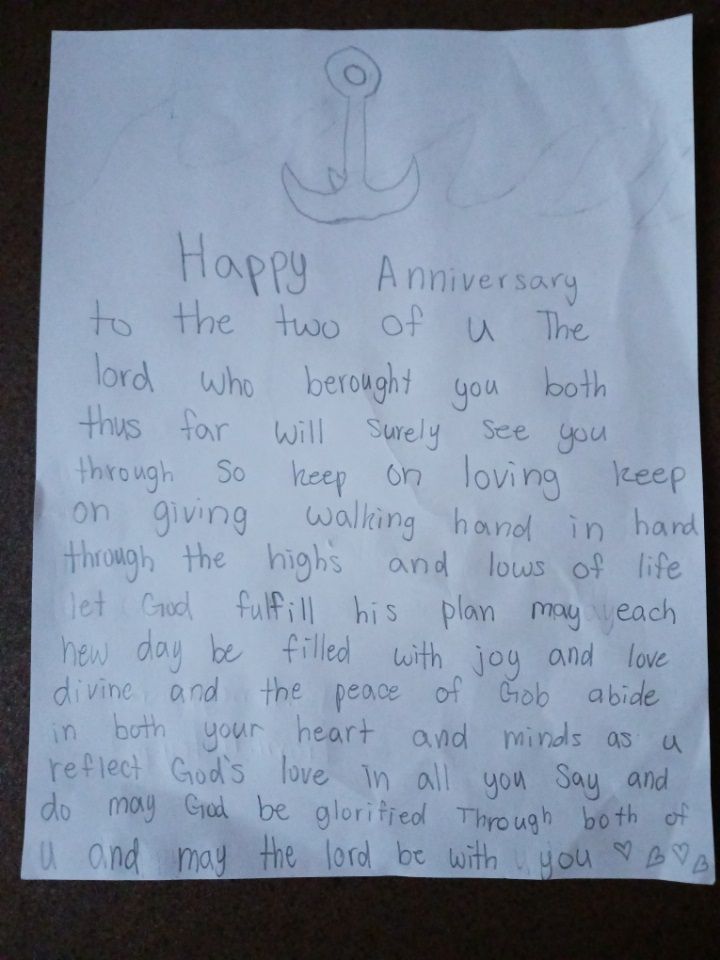 Happy Anniversary
to the two of u The
lord who berought you both
thus far will surely see you
through so keep on loving keep
on giving walking hand in hand
through the high's and lows of life
let God fulfill his plan may each
new day be filled with joy and love
divine and the peace of Gob abide
in both your heart and minds as u
reflect God's love in all you say and
do may God be glorified Through both of
u and may the lord be with you ♡ ♡ ♡ ♡